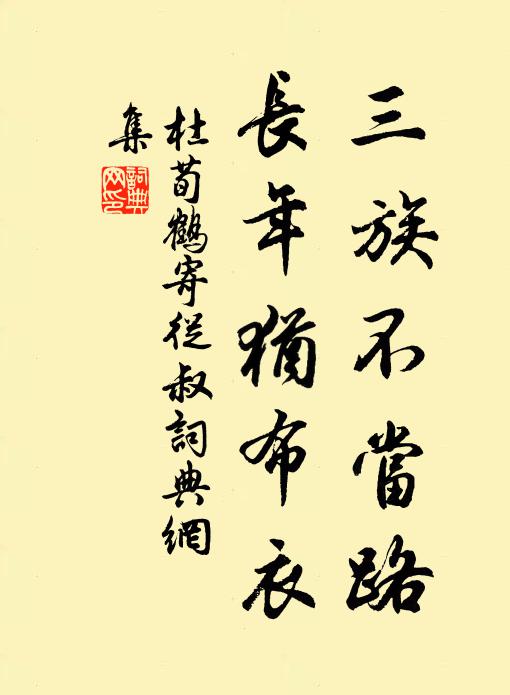 三族不當路
長年猶布衣
杜荀鶴寄從叔詞典網
集
詞典网印